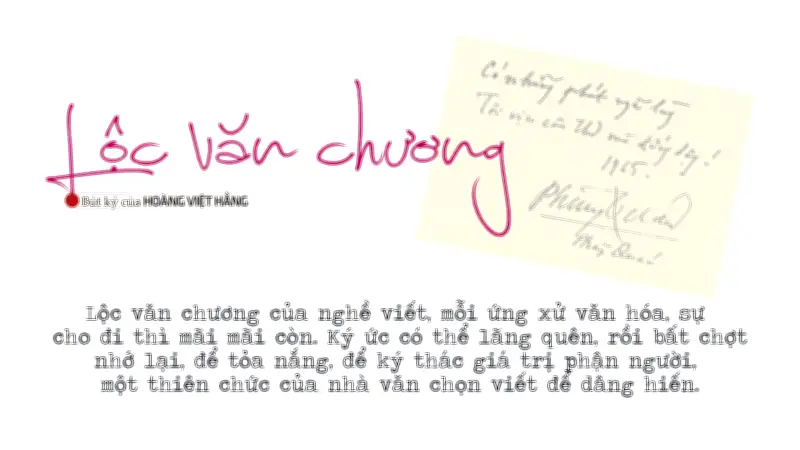 Lộc văn chương
Bút ký của HOÀNG VIỆT HẰNG
Có những phút ngã lòng
Tôi vịn câu thơ mà đứng dậy!
Phùng Quán
Phùng Quán
Lộc văn chương của nghề viết, mỗi ứng xử văn hóa, sự
cho đi thì mãi mãi còn. Ký ức có thể lãng quên, rồi bất chợt
nhớ lại, để tỏa nắng, để ký thác giá trị phận người,
một thiên chức của nhà văn chọn viết để dâng hiến.